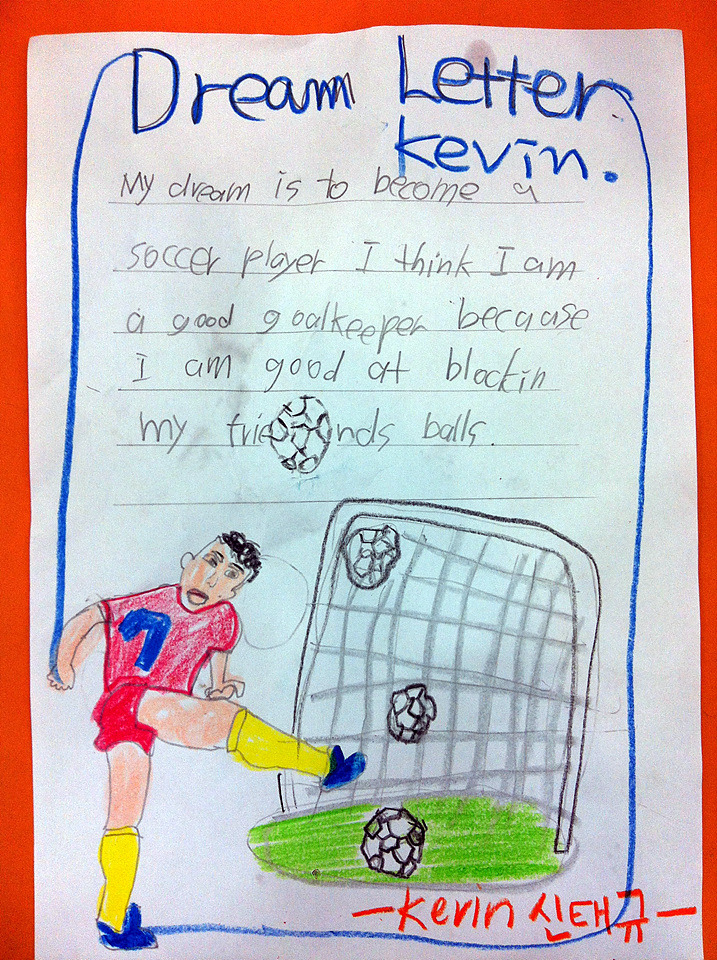 Dream Letter
kevin.
My dream is to become a
soccer player I think I am
a good goalkeeper because
I am good at blockin
my friends balls.
7
-kevin 신태규-